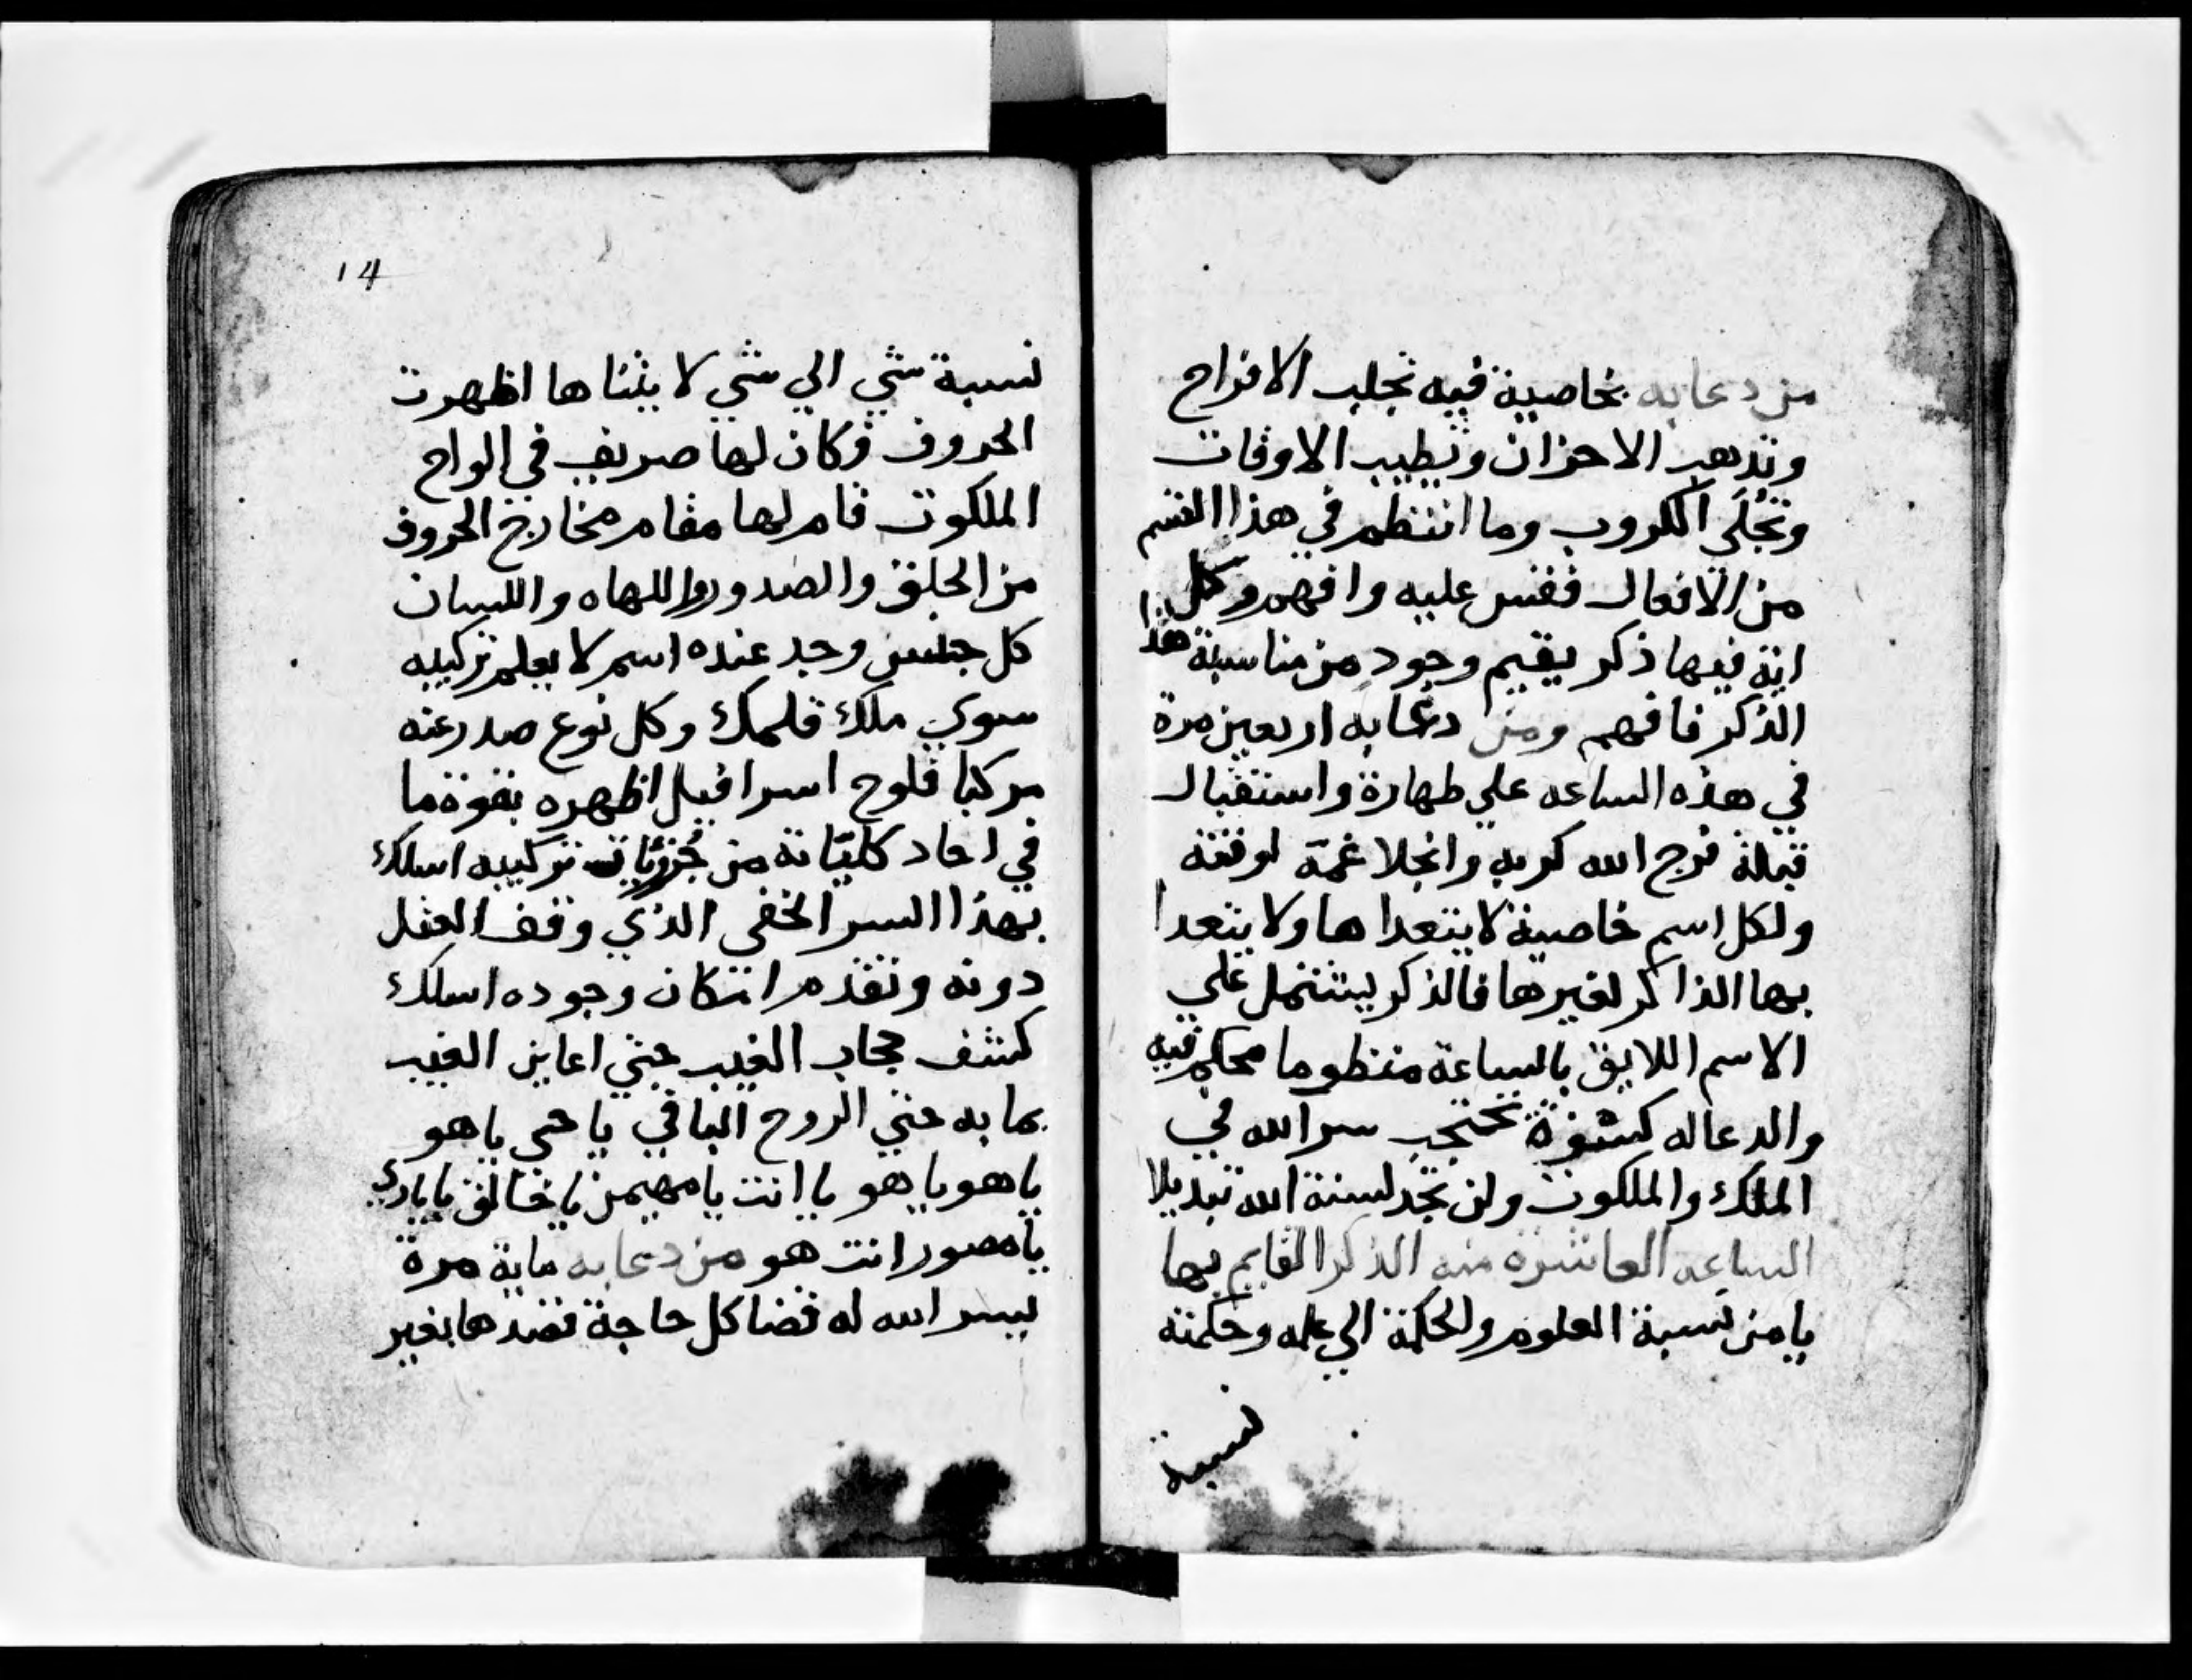 من دعا به بخاصية فيه تجلب الافراح
وتذهب الاحزان وتطيب الاوقات
وتجلي الكروب وما انتظم في هذا القسم
من الافعال فقس عليه وافهم وكل
اية فيها ذكر يقيم وجود من مناسبة هذا
الذكر فافهم ومن دعا به اربعين مرة
في هذه الساعه علي طهارة واستقبال
قبلة فرج الله كربه وانجلا غمه لوقته
ولكل اسم خاصية لا يتعداها ولا يتعدا
بها الذاكر لغيرها فالذكر يشتمل علي
الاسم اللايق بالساعة منظوما محكم فيه
والدعا له كشفرة تحتجب سر الله في
الملك والملكوت ولن تجد لسنة الله تبديلا
الساعه العاشرة منه الذكر القايم بها
يا من نسبة العلوم والحكمة الي علمه وحكمته
نسبة
14
نسبة شي الي شي لا يتناها اظهرت
الحروف وكان لها صريف في الواح
الملكوت قام لها مقام مخارج الحروف
من الحلق والصدور واللهاه واللسان
كل جنس وجد عنده اسم لا يعلم تركيبه
سوي ملك قلمك وكل نوع صدر عنه
مركبا فلوح اسرافيل اظهره بقوة ما
في احاد كلياته من جزئيات تركيبه اسلك
بهذا السر الخفي الذي وقف العقل
دونه وتقدم انتكان وجوده اسلك
كشف حجاب الغيب حتي اعاين الغيب
بما به حتي الروح الباقي يا حي يا هو
يا هو يا هو يا انت يا مهيمن يا خالق يا باري
يا مصور انت هو من دعا به ماية مرة
يسر الله له قضا كل حاجة قصدها بغير